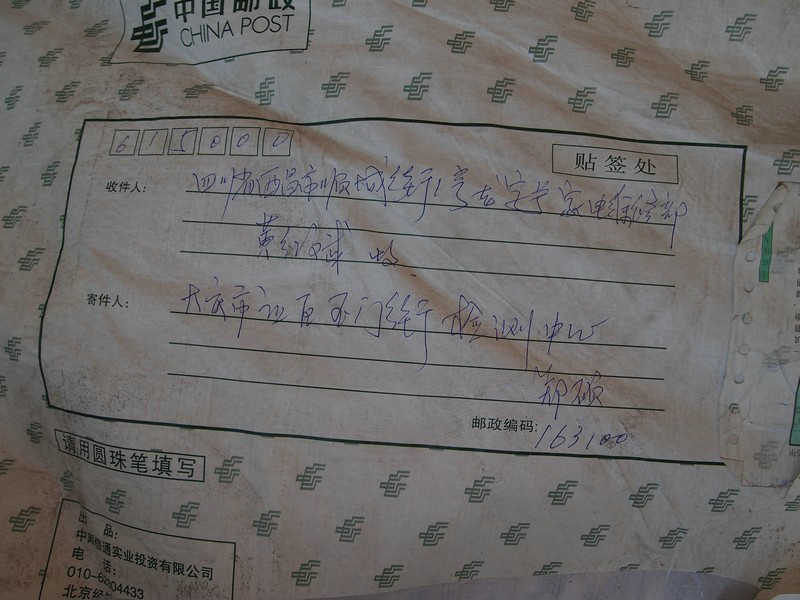 中国邮政
CHINA POST
615000
贴签处
收件人: 四川省西昌市顺城街1号 家电维修部
黄 收
寄件人: 大庆市 区 门街 检测中心
郑硕
邮政编码: 163100
请用圆珠笔填写
出 品:
中 通实业投资有限公司
电 话:
010- 04433
北京